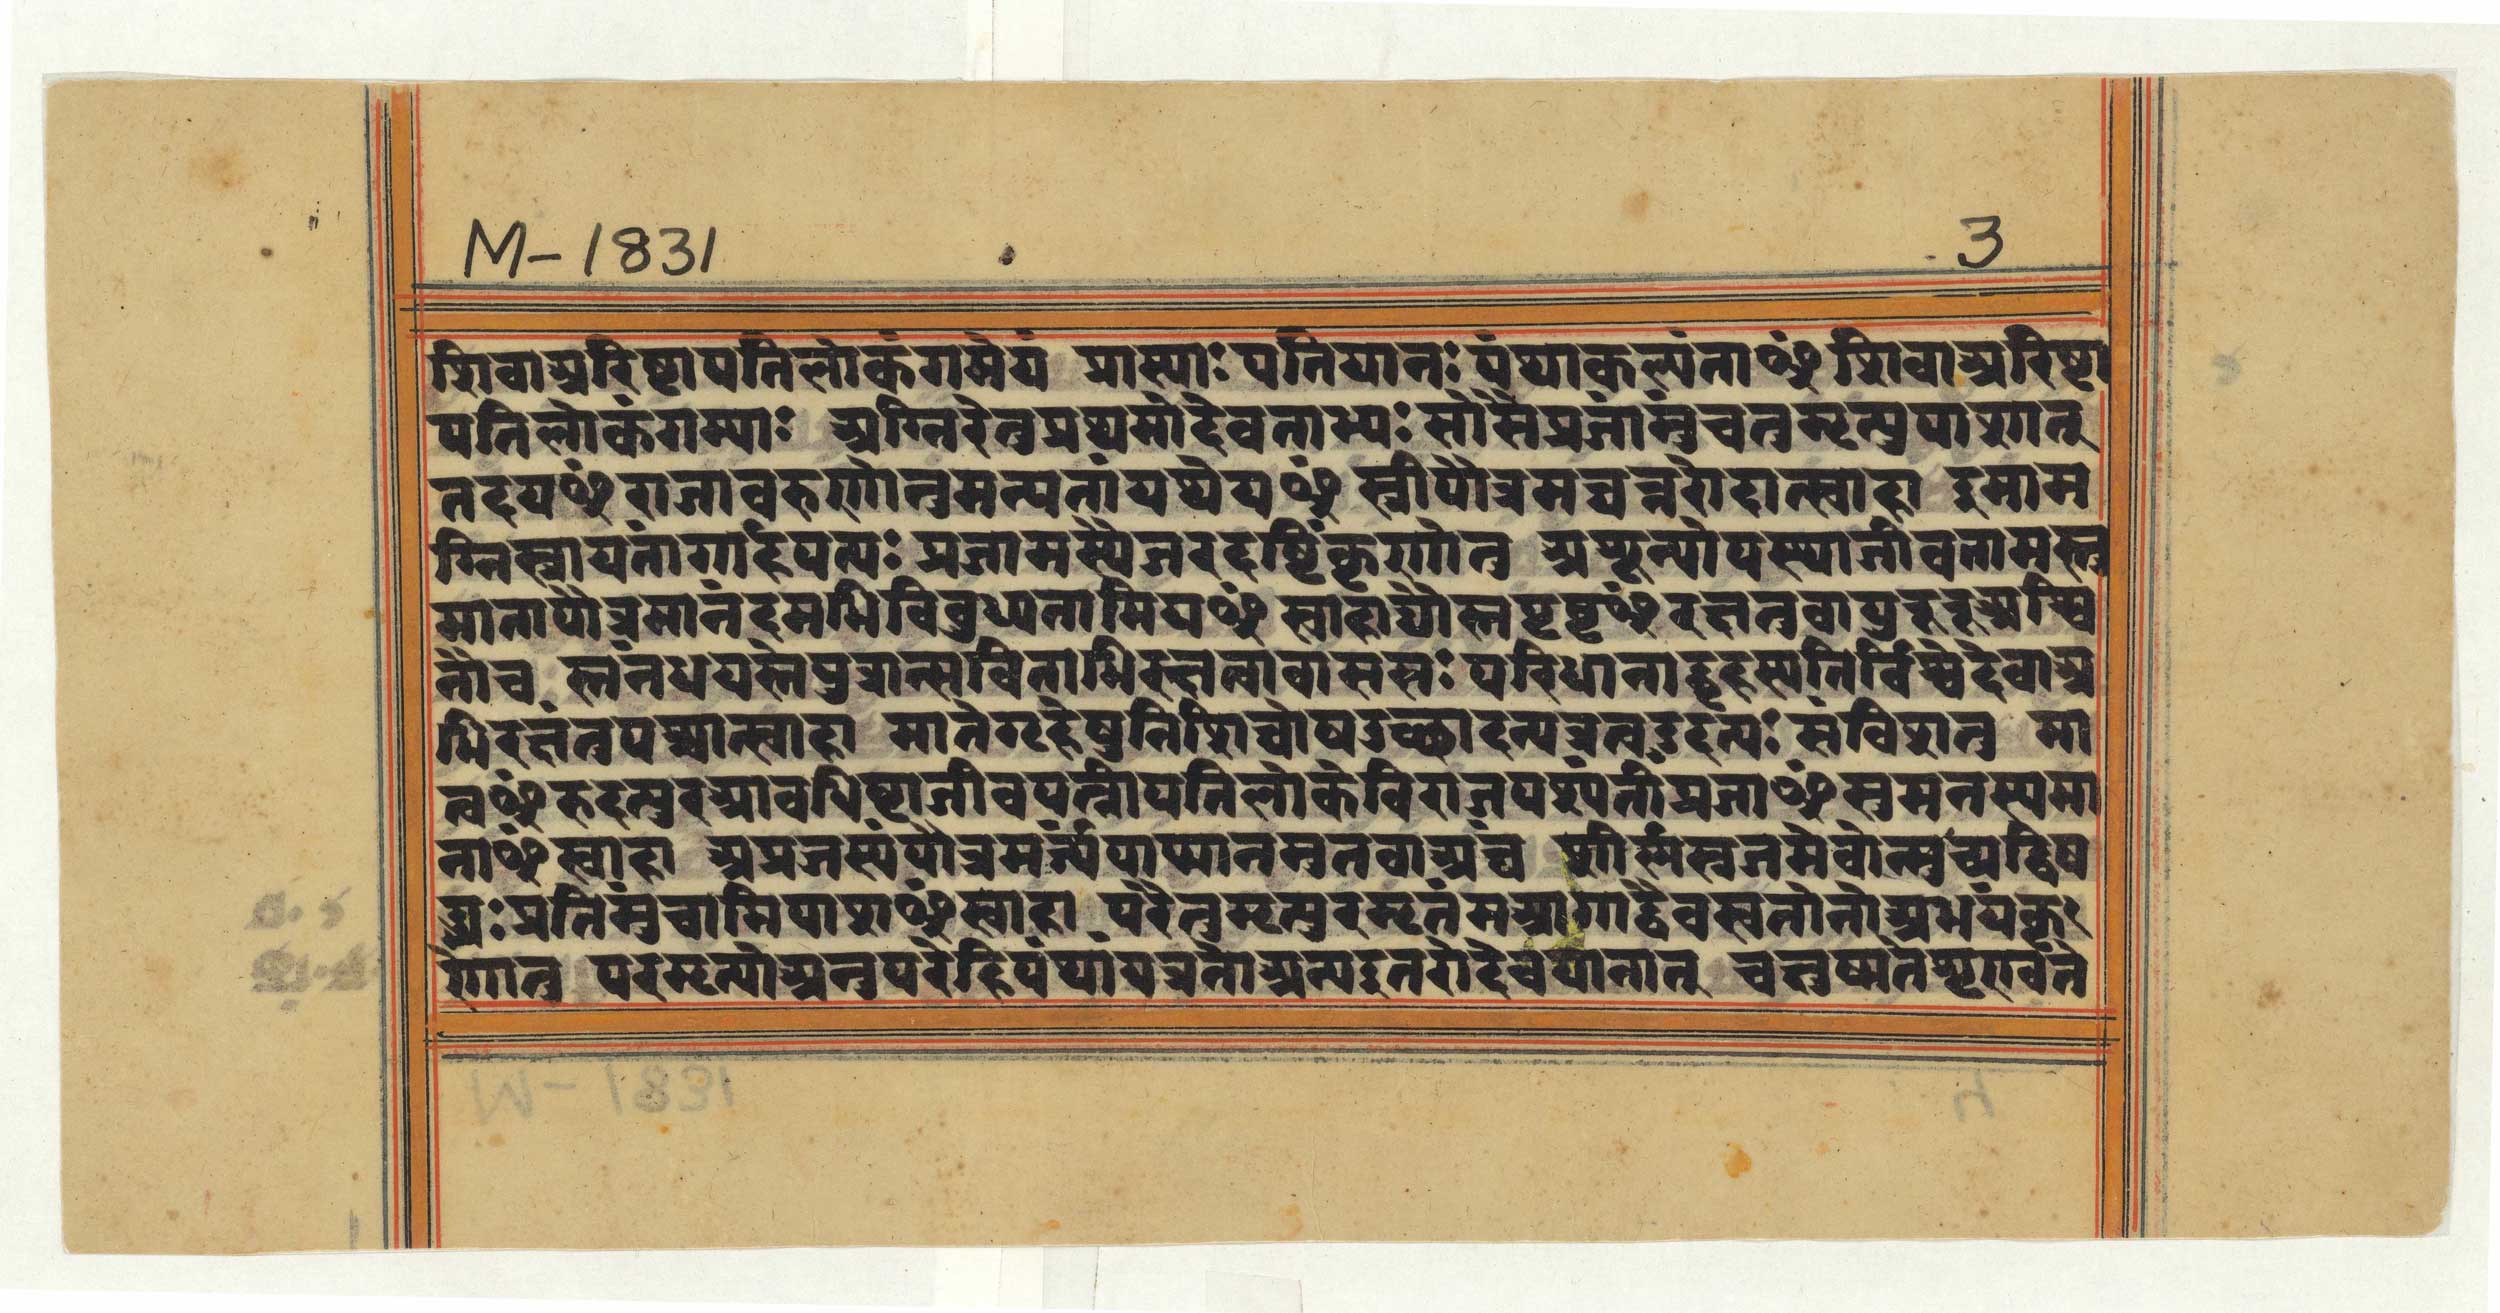 M-1831 3
शिवाअरिष्टापतिलोकंगमेयं प्रास्याः पतियानः पंथाकल्पंताꣳशिवाअरिष्टा
पतिलोकंगम्याः अग्निरेतुप्रथमोदेवताभ्यः सोस्यैप्रजांमुंचतुमृत्युपाशात्
तदयꣳराजावरुणोनुमन्यतांयथेयꣳ स्त्रीपौत्रमघन्नरोदात्स्वाहा इमाम
ग्निस्त्रायतांगार्हपत्यः प्रजामस्यैजरदष्टिंकृणोतु अशून्योपस्थाजीवतामस्तु
मातापौत्रमानंदमभिविबुध्यतामियꣳ स्वाहाद्यौस्तेपृष्टꣳरक्षतुवायुरूरूअश्वि
नौच स्तनंधयस्तेपुत्रान्सविताभिरक्षत्वावाससः परिधानाद्बृहस्पतिर्विश्वेदेवाअ
भिरक्षंतुपश्चात्स्वाहा मातेगृहेषुनिशिघोषउच्छादन्यत्रत्वद्रुदत्यः संविशंतु मा
त्वꣳरुदत्युरआवधिष्टाजीवपत्नीपतिलोकेविराजपश्यंतींप्रजाꣳसुमनस्यमा
नाꣳस्वाहा अप्रजस्यंपौत्रमर्त्यंपाप्मानमुतवाअघं शीर्ष्णस्रजमेवोन्मुच्यद्विष
द्भ्यःप्रतिमुंचामिपाशꣳस्वाहा परैतुमृत्युरमृतंमआगाद्वैवस्वतोनोअभयंकृ
णोतु परंमृत्योअनुपरेहिपंथांयत्रनोअन्यइतरोदेवयानात् चक्षुष्मतेशृण्वते